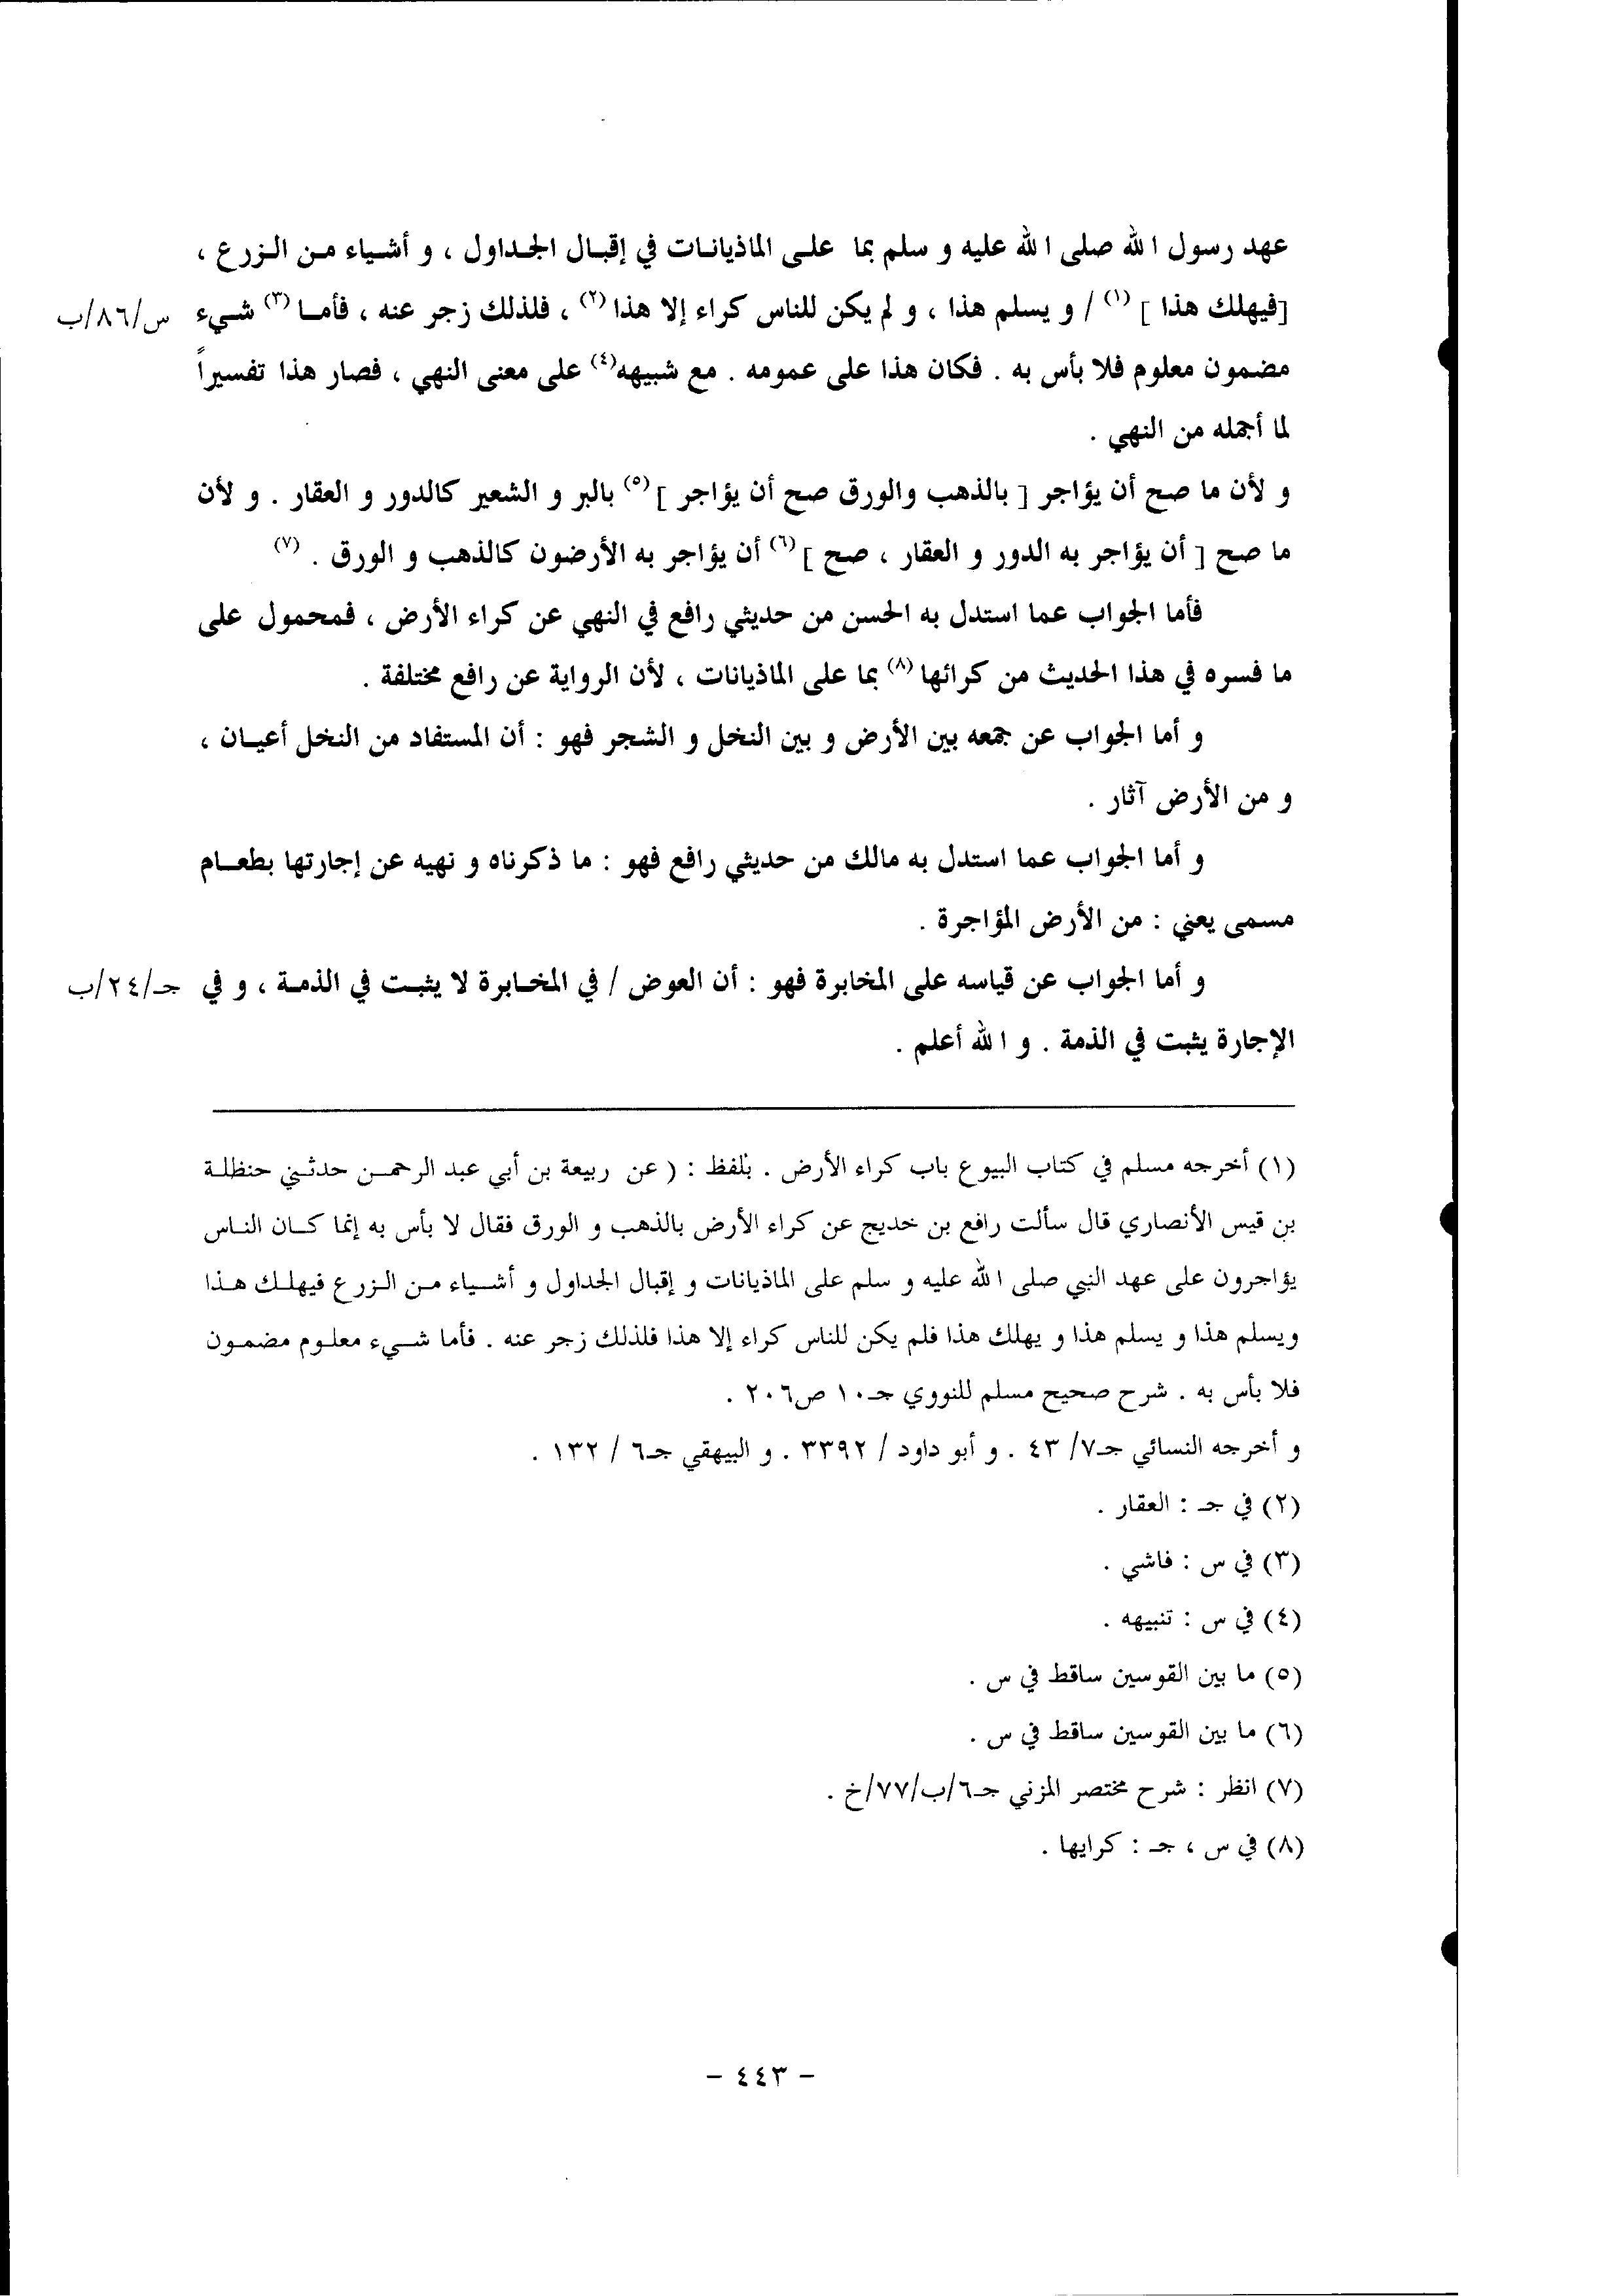 عهد رسول الله صلى الله عليه و سلم بما على الماذيانات في إقبال الجداول ، و أشياء من الزرع ،
[فيهلك هذا ] (١) / و يسلم هذا ، و لم يكن للناس كراء إلا هذا (٢) ، فلذلك زجر عنه ، فأما (٣) شيء س/٨٦/ب
مضمون معلوم فلا بأس به . فكان هذا على عمومه . مع شبيهه(٤) على معنى النهي ، فصار هذا تفسيراً
لما أجمله من النهي .
و لأن ما صح أن يؤاجر [ بالذهب والورق صح أن يؤاجر ] (٥) بالبر و الشعير كالدور و العقار . و لأن
ما صح [ أن يؤاجر به الدور و العقار ، صح ] (٦) أن يؤاجر به الأرضون كالذهب و الورق . (٧)
فأما الجواب عما استدل به الحسن من حديثي رافع في النهي عن كراء الأرض ، فمحمول على
ما فسره في هذا الحديث من كرائها (٨) بما على الماذيانات ، لأن الرواية عن رافع مختلفة .
و أما الجواب عن جمعه بين الأرض و بين النخل و الشجر فهو : أن المستفاد من النخل أعيان ،
و من الأرض آثار .
و أما الجواب عما استدل به مالك من حديثي رافع فهو : ما ذكرناه و نهيه عن إجارتها بطعام
مسمى يعني : من الأرض المؤاجرة .
و أما الجواب عن قياسه على المخابرة فهو : أن العوض / في المخابرة لا يثبت في الذمة ، و في جـ/٢٤/ب
الإجارة يثبت في الذمة . و الله أعلم .
(١) أخرجه مسلم في كتاب البيوع باب كراء الأرض . بلفظ : ( عن ربيعة بن أبي عبد الرحمن حدثني حنظلة
بن قيس الأنصاري قال سألت رافع بن خديج عن كراء الأرض بالذهب و الورق فقال لا بأس به إنما كان الناس
يؤاجرون على عهد النبي صلى الله عليه و سلم على الماذيانات و إقبال الجداول و أشياء من الزرع فيهلك هذا
ويسلم هذا و يسلم هذا و يهلك هذا فلم يكن للناس كراء إلا هذا فلذلك زجر عنه . فأما شيء معلوم مضمون
فلا بأس به . شرح صحيح مسلم للنووي جـ١٠ ص٢٠٦ .
و أخرجه النسائي جـ٧/ ٤٣ . و أبو داود / ٣٣٩٢ . و البيهقي جـ٦ / ١٣٢ .
(٢) في جـ : العقار .
(٣) في س : فاشي .
(٤) في س : تنبيهه .
(٥) ما بين القوسين ساقط في س .
(٦) ما بين القوسين ساقط في س .
(٧) انظر : شرح مختصر المزني جـ٦/ب/٧٧/خ .
(٨) في س ، جـ : كرايها .
- ٤٤٣ -